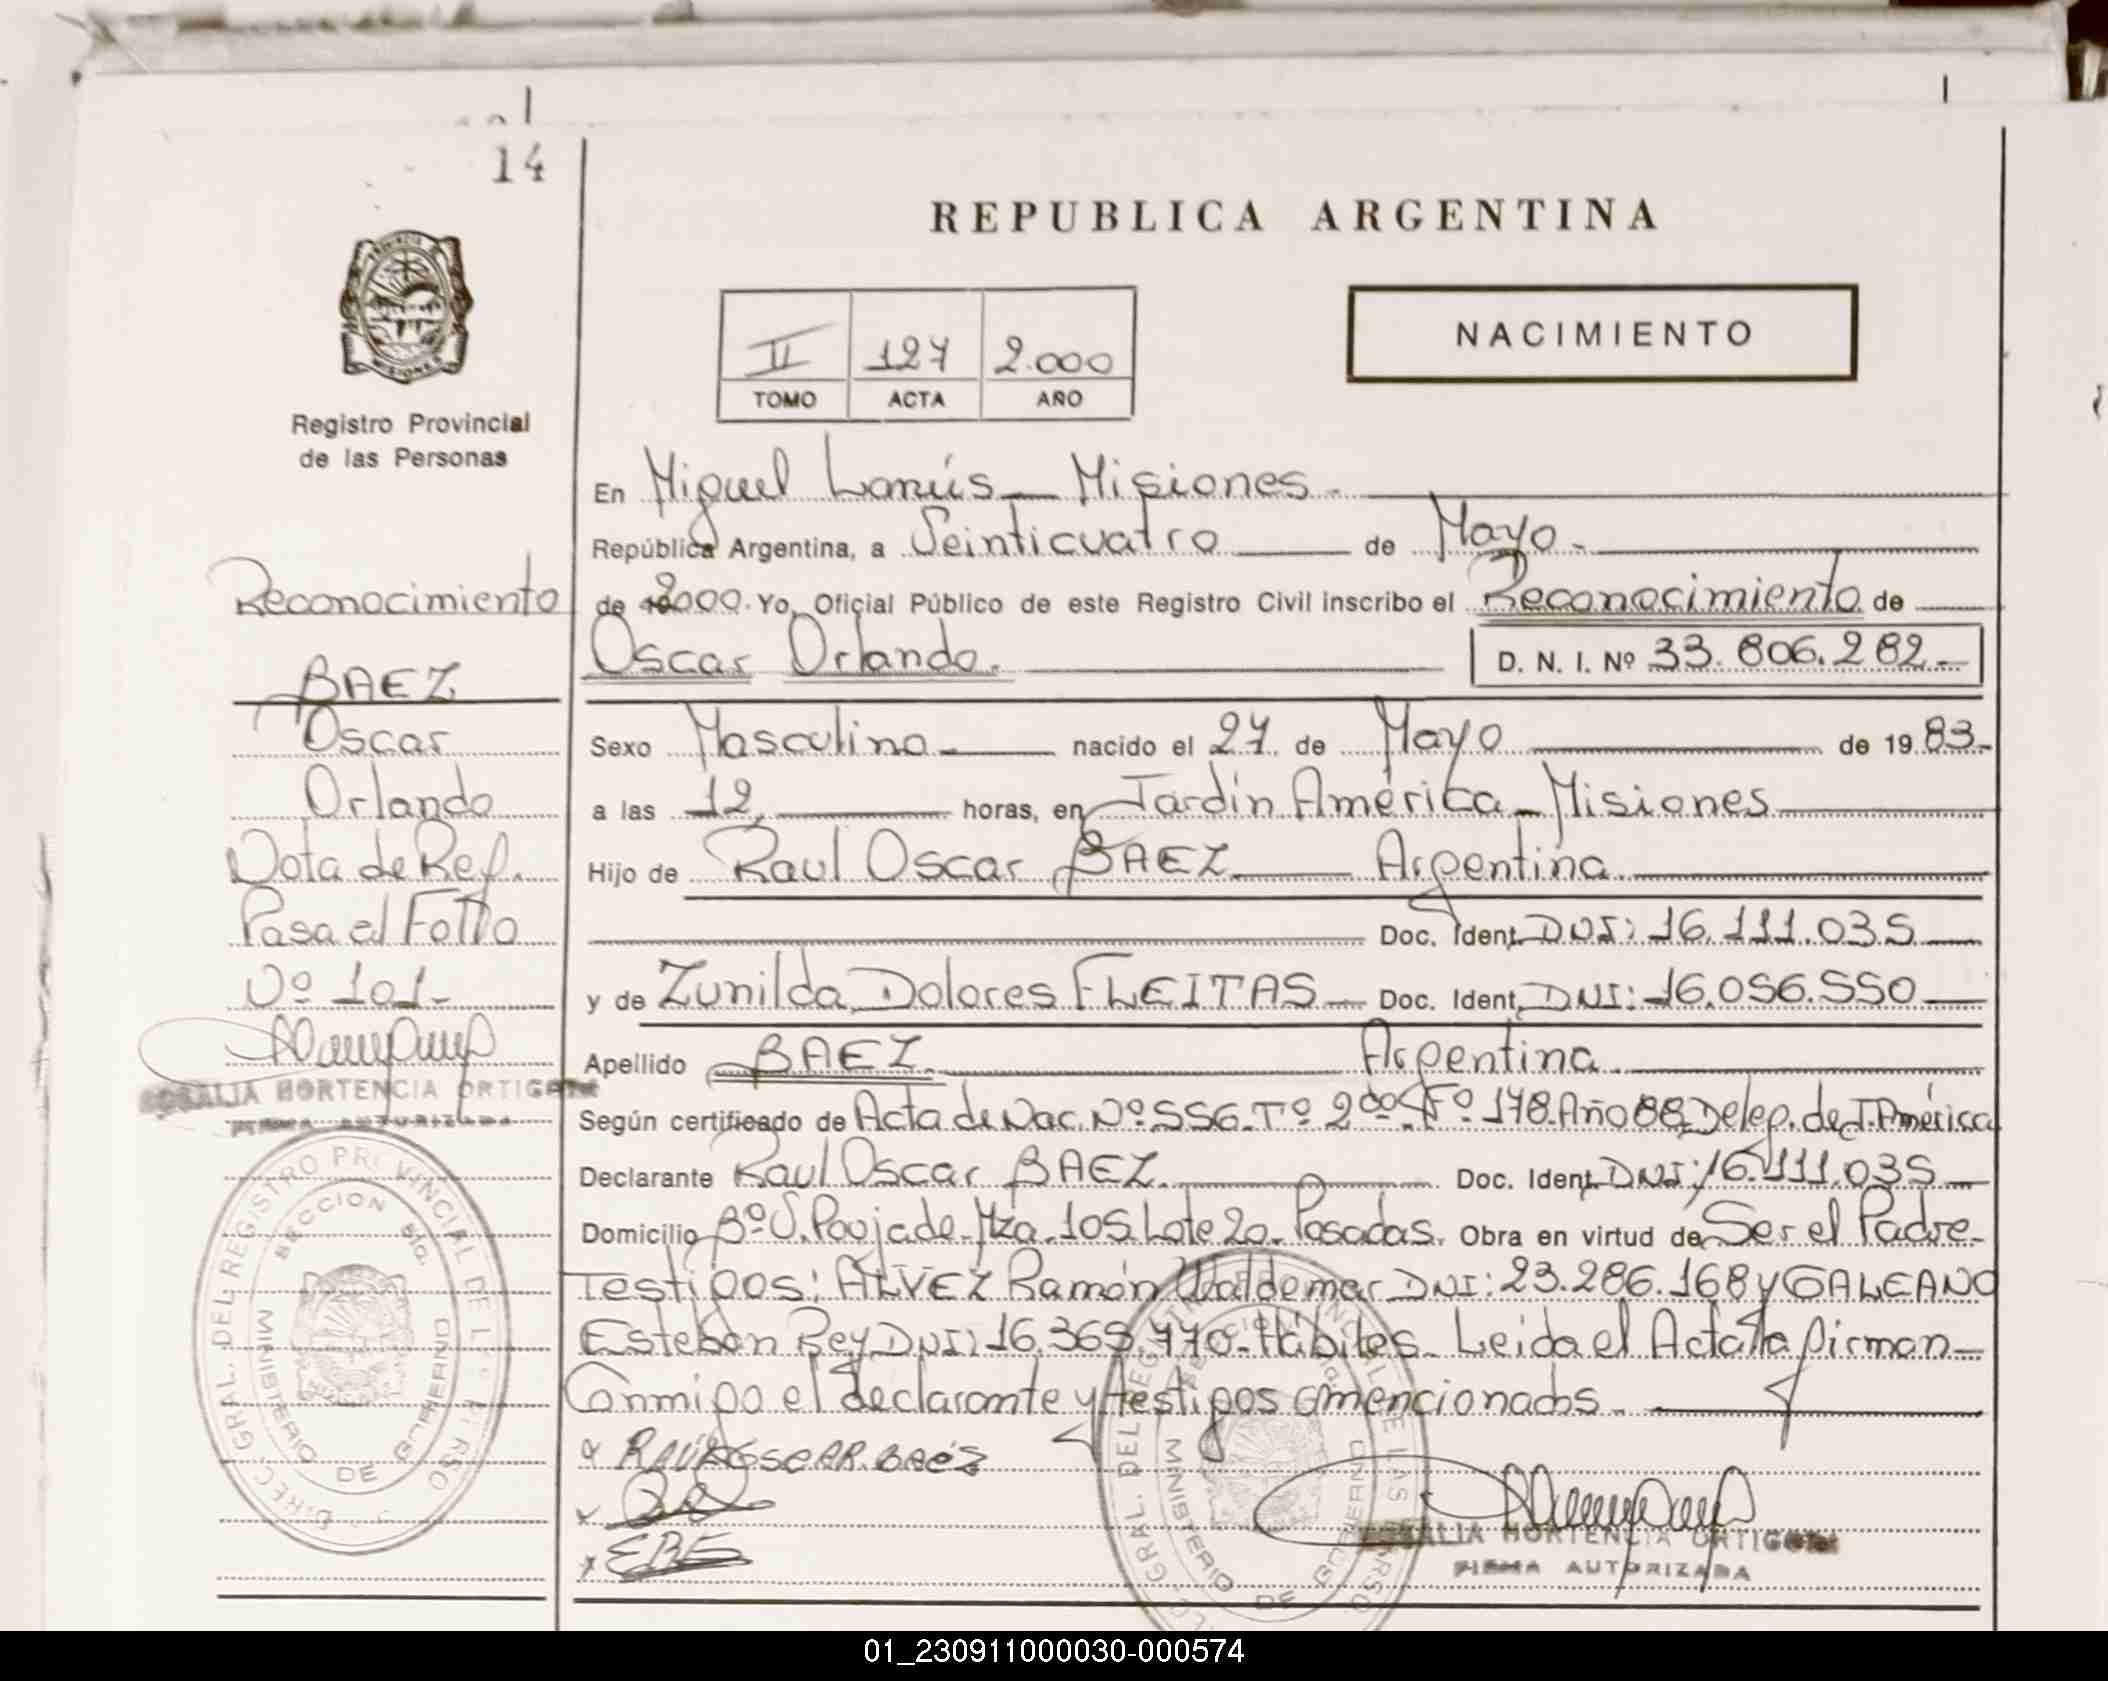 14
REPUBLICA ARGENTINA
NACIMIENTO
II 127 2.000
TOMO ACTA AÑO
Registro Provincial
de las Personas
En Miguel Lanús - Misiones.
República Argentina, a Veinticuatro de Mayo.
de 2000. Yo, Oficial Público de este Registro Civil inscribo el Reconocimiento de
Oscar Orlando. D. N. I. Nº 33.806.282.-
Sexo Masculino nacido el 27 de Mayo de 1983.-
a las 12, horas, en Jardín América - Misiones
Hijo de Raul Oscar BAEZ Argentina.
Doc. Ident. DNI: 16.111.035
y de Zunilda Dolores FLEITAS Doc. Ident. DNI: 16.056.550
Apellido BAEZ. Argentina.
Según certificado de Acta de Nac. Nº 556. Tº 2do. Fº 178. Año 88 Deleg. de J. América
Declarante Raul Oscar BAEZ. Doc. Ident. DNI: 16.111.035
Domicilio Bº S. Poujade. Mza. 105 Lote 20. Posadas. Obra en virtud de Ser el Padre-
Testigos: ALVEZ Ramón Waldemar DNI: 23.286.168 y GALEANO
Esteban Rey DNI: 16.365.770. Hábiles. Leida el Acta la firman
Conmigo el declarante y testigos mencionados.
RAUL OSCAR. BAEZ
ROSALIA HORTENCIA ORTIGOZA
FIRMA AUTORIZADA
Reconocimiento
BAEZ
Oscar
Orlando
Nota de Ref.
Pasa el Folio
Nº 101-
ROSALIA HORTENCIA ORTIGOZA
FIRMA AUTORIZADA
DIREC. GRAL. DEL REGISTRO PROVINCIAL DE LAS PERSO
SECCION 5ta.
MINISTERIO DE GOBIERNO
DIREC. GRAL. DEL REGISTRO PROVINCIAL DE LAS PERSO
SECCION 5ta.
MINISTERIO DE GOBIERNO
01_230911000030-000574